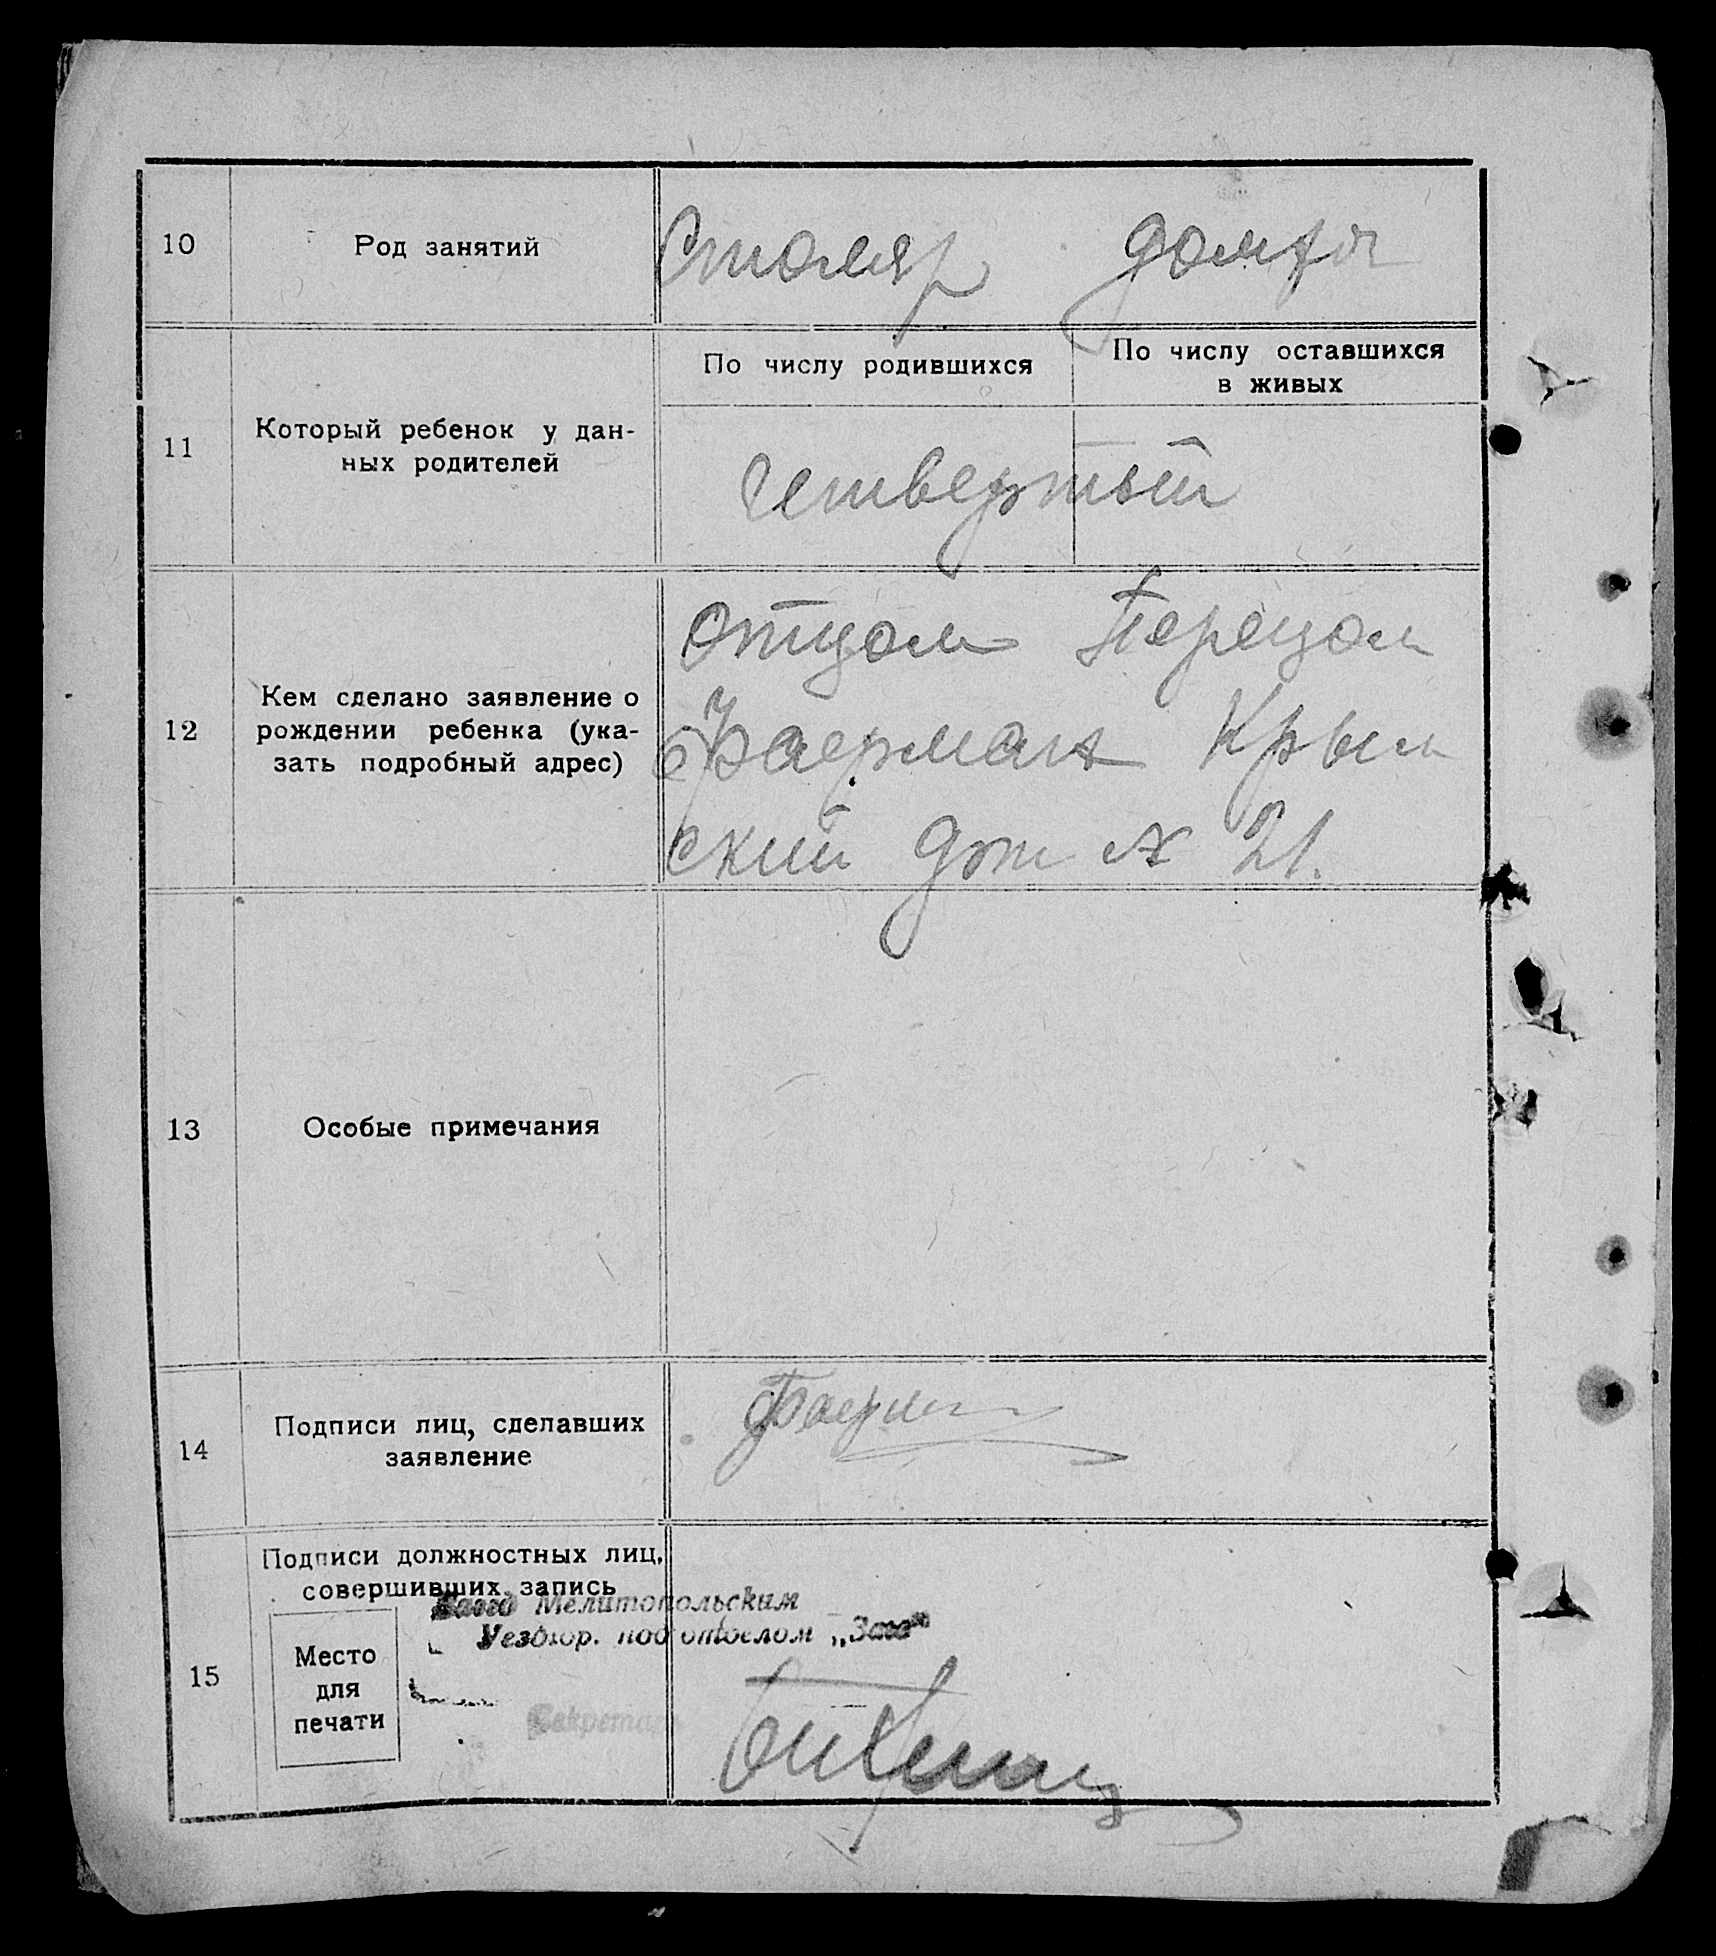 10
Род занятий
Столяр домхоз
По числу родившихся
По числу оставшихся
в живых
11
Который ребенок у дан-
ных родителей
четвертый
12
Кем сделано заявление о
рождении ребенка (ука-
зать подробный адрес)
Отцом Перецом
Фаерман Крым
ский № 21.
13
Особые примечания
14
Подписи лиц, сделавших
заявление
Фаерман
15
Подписи должностных лиц,
совершивших запись
Мелитопольским
подотделом „Загс“
Место
для
печати
Секретарь